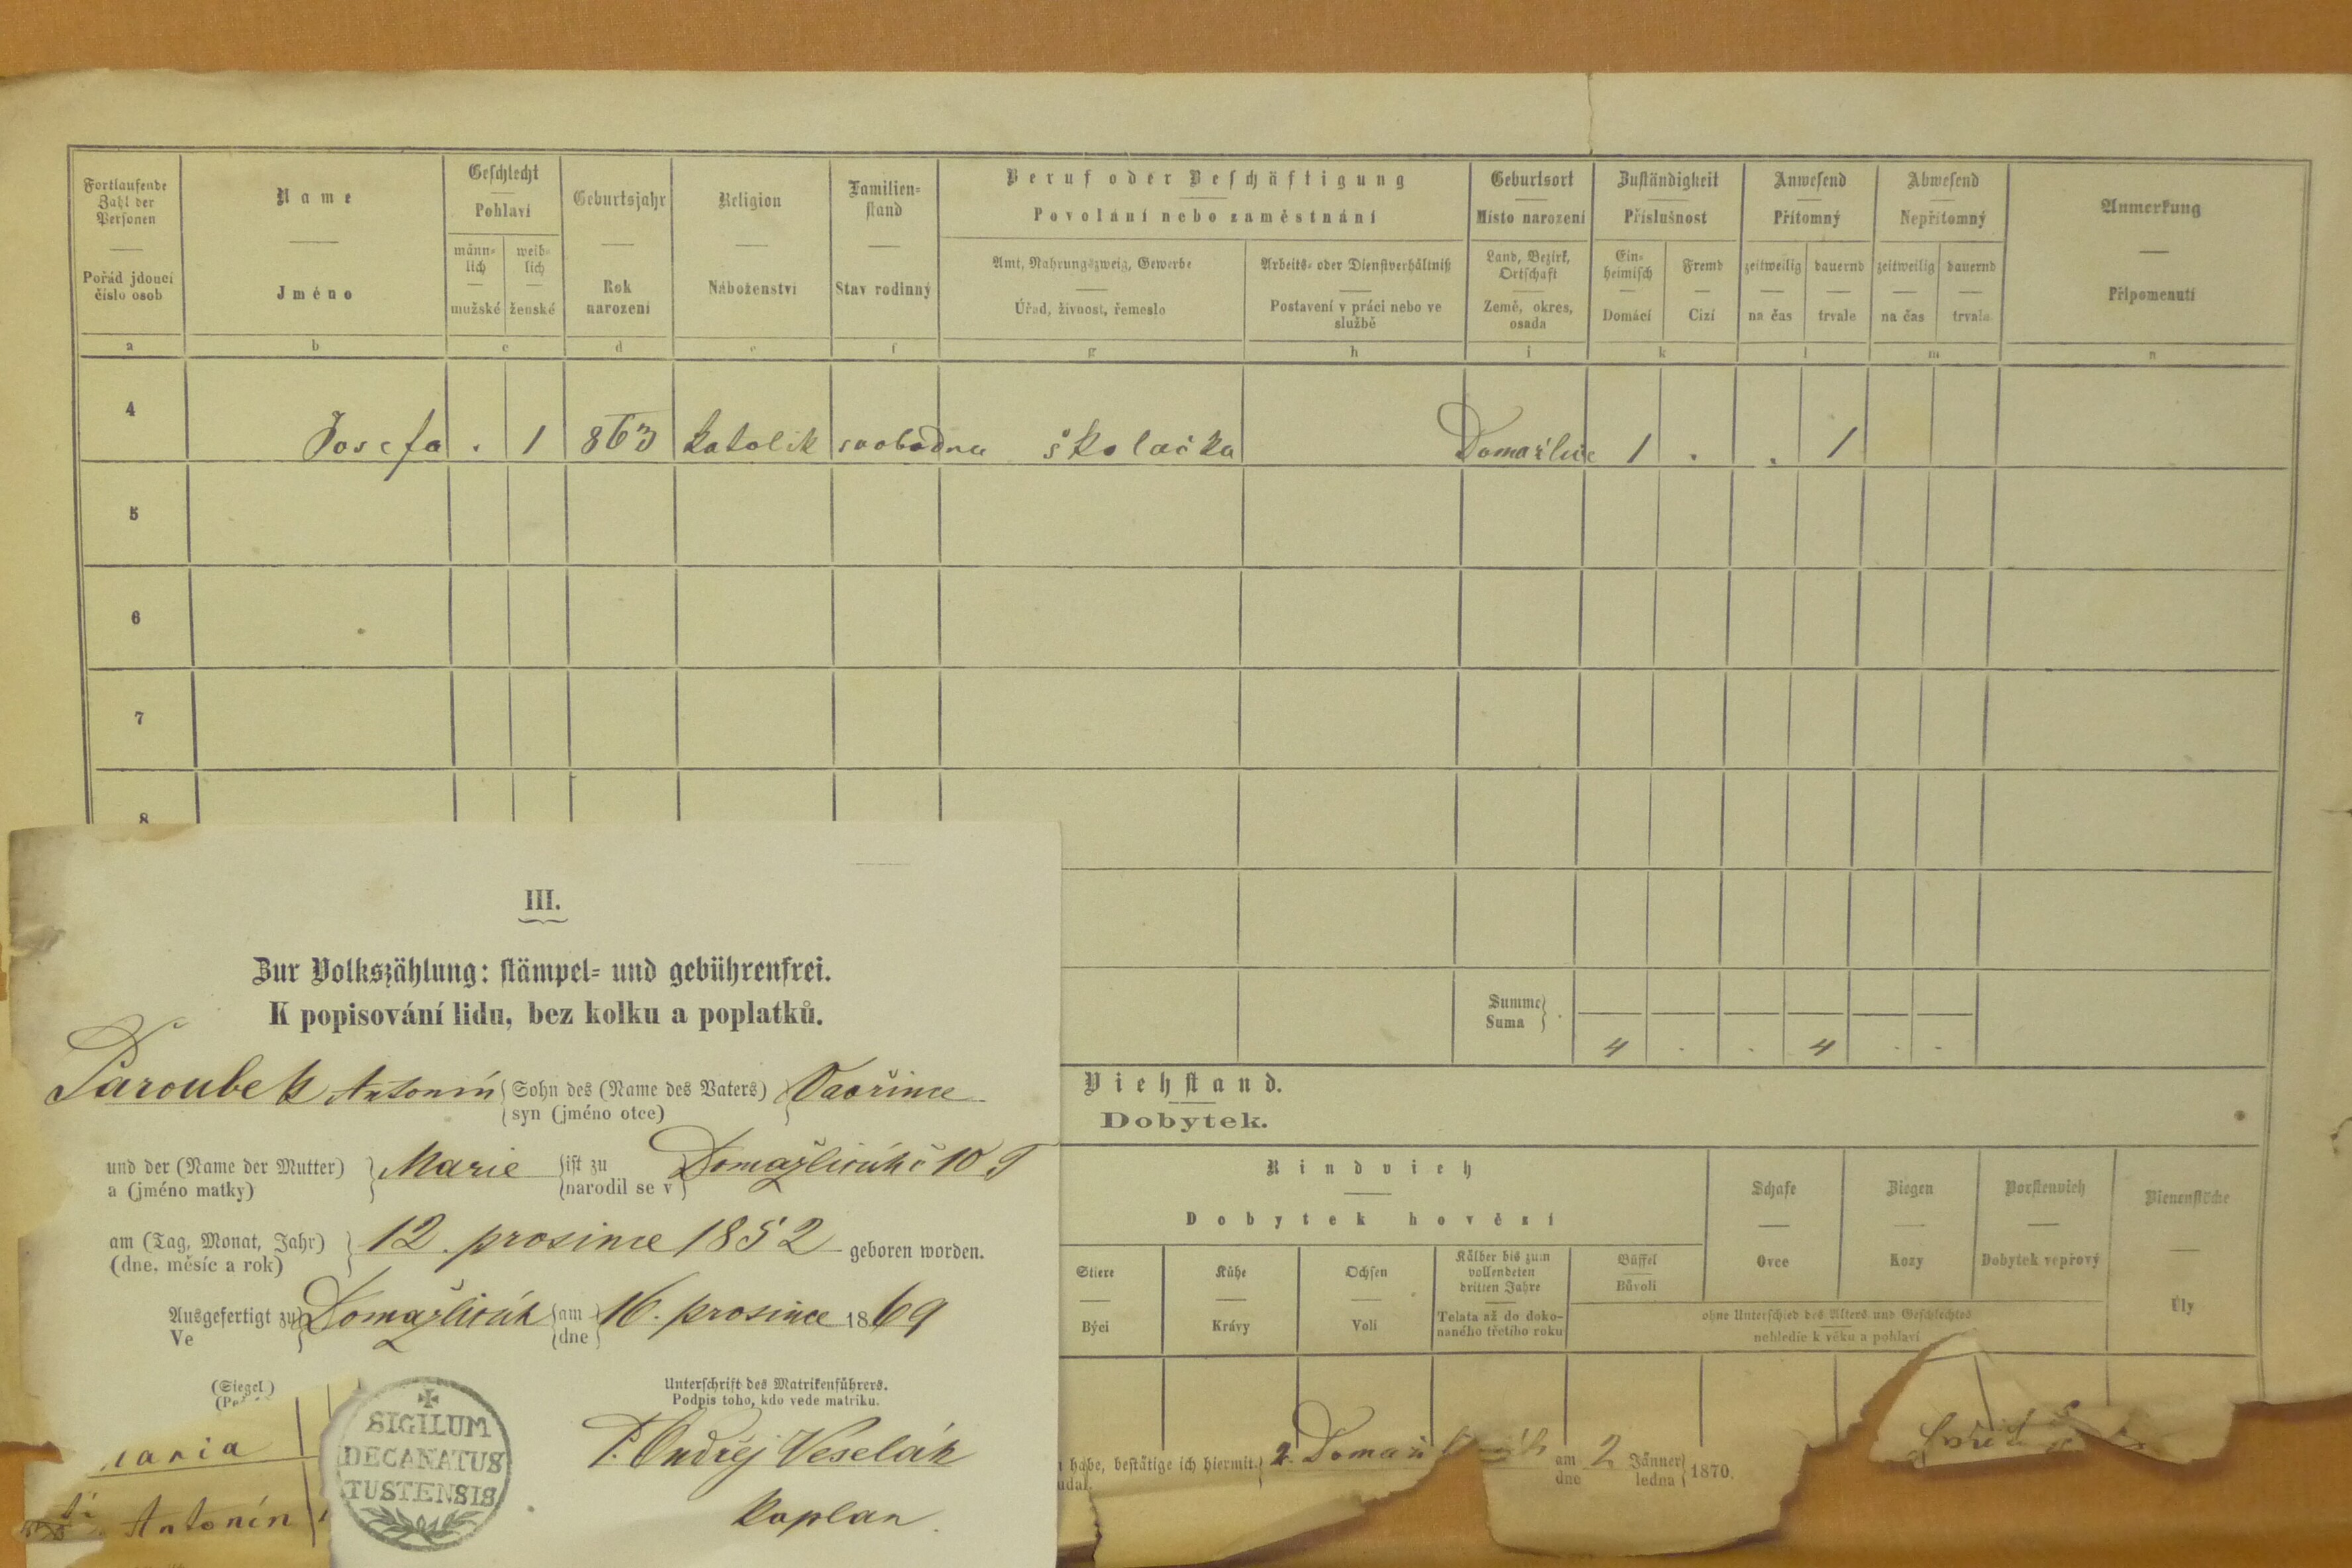 Fortlaufende Zahl der Personen
Pořád jdoucí číslo osob
Name
Jméno
Geschlecht
Pohlaví
männ-lich
mužské
weib-lich
ženské
Geburtsjahr
Rok narození
Religion
Náboženství
Familien-stand
Stav rodinný
Beruf oder Beschäftigung
Povolání nebo zaměstnání
Amt, Nahrungszweig, Gewerbe
Úřad, živnost, řemeslo
Arbeits- oder Dienstverhältniß
Postavení v práci nebo ve službě
Geburtsort
Místo narození
Land, Bezirk, Ortschaft
Země, okres, osada
Zuständigkeit
Příslušnost
Ein-heimisch
Domácí
Fremd
Cizí
Anwesend
Přítomný
zeitweilig
na čas
dauernd
trvale
Abwesend
Nepřítomný
zeitweilig
na čas
dauernd
trvale
Anmerkung
Připomenutí
a b c d e f g h i k l m n
4 Josefa . 1 863 katolik svobodna školačka Domažlice 1 . . 1
5
6
7
8
Summe
Suma
4 . . 4 . .
Viehstand.
Dobytek.
Rindvieh
Dobytek hovězí
Stiere
Býci
Kühe
Krávy
Ochsen
Voli
Kälber bis zum vollendeten dritten Jahre
Telata až do doko-naného třetího roku
Büffel
Bůvoli
Schafe
Ovce
Ziegen
Kozy
Borstenvieh
Dobytek vepřový
ohne Unterschied des Alters und Geschlechtes
nehledíc k věku a pohlaví
Bienenstöcke
Úly
habe, bestätige ich hiermit.
am
dne
2
Jänner
ledna
1870.
III.
Zur Volkszählung: stämpel- und gebührenfrei.
K popisování lidu, bez kolku a poplatků.
Paroubek Antonín Sohn des (Name des Vaters) Vavřince
syn (jméno otce)
und der (Name der Mutter) Marie ist zu Domažlicích č 10
a (jméno matky) narodil se v
am (Tag, Monat, Jahr) 12. prosince 1852 geboren worden.
(dne, měsíc a rok)
Ausgefertigt zu Domažlicích am 16. prosince 1869
Ve dne
(Siegel)
Unterschrift des Matrikenführers.
Podpis toho, kdo vede matriku.
P. Ondřej Veselák
kaplan.
SIGILUM
DECANATUS
TUSTENSIS
Antonín